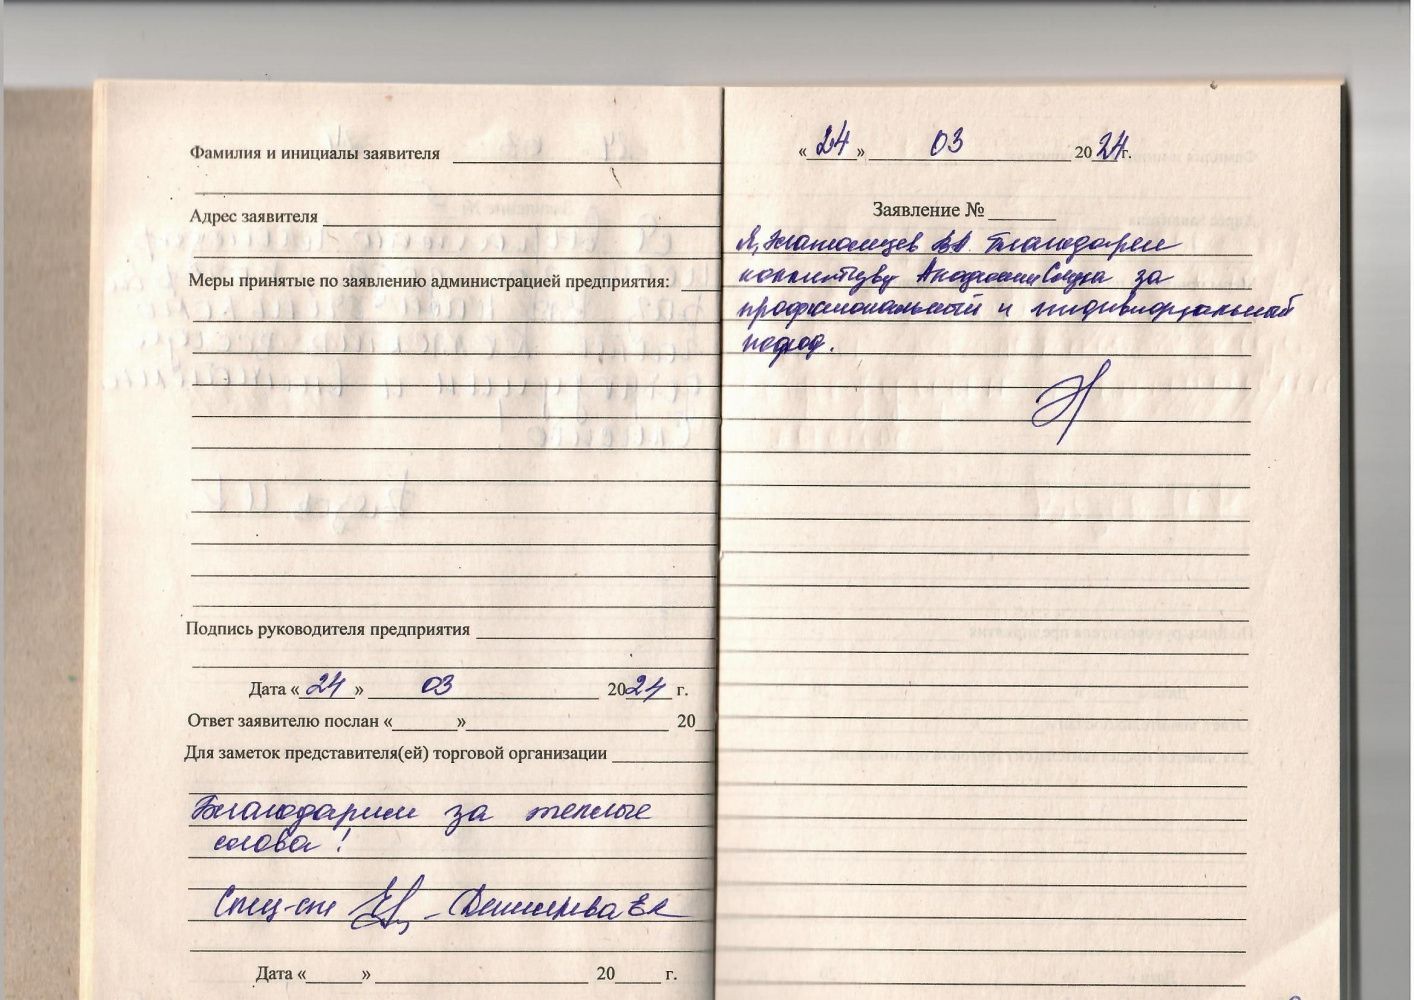 Фамилия и инициалы заявителя
Адрес заявителя
Меры принятые по заявлению администрацией предприятия:
Подпись руководителя предприятия
Дата «24» 03 2024 г.
Ответ заявителю послан « » 20
Для заметок представителя(ей) торговой организации
Благодарим за теплые
слова!
Спец-ст
Дата « » 20 г.
«24» 03 2024г.
Заявление №
Я, ВА Благодарен
за
профессиональный и индивидуальный
подход.